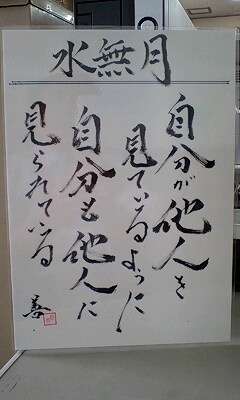 水無月
自分が他人を
見ているように
自分も他人に
見られている
善